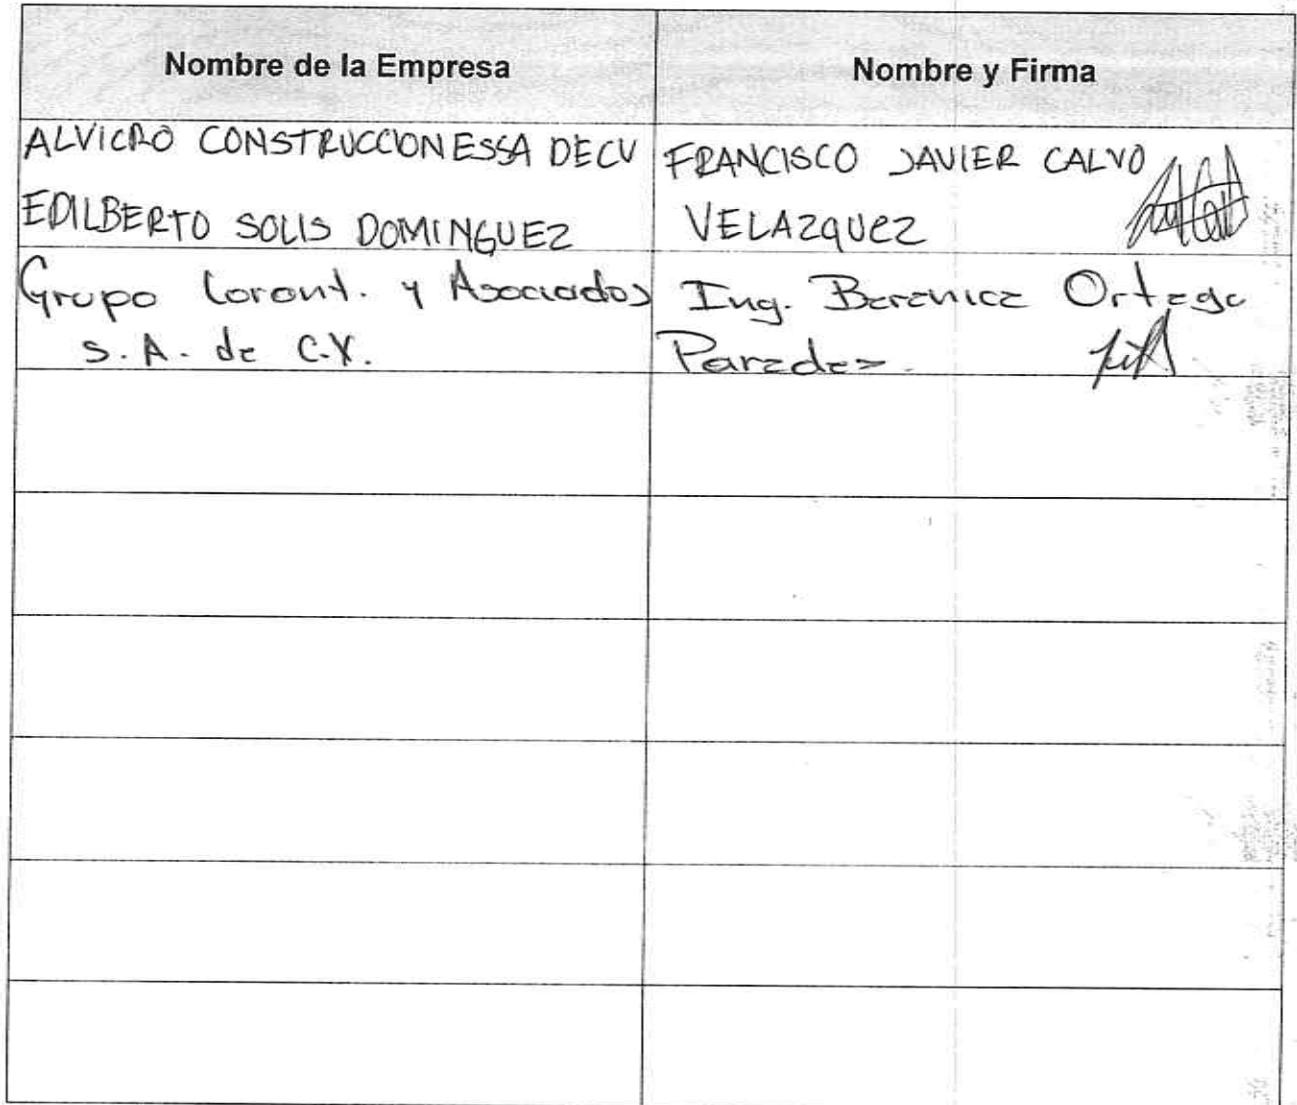 Nombre de la Empresa
Nombre y Firma
ALVICRO CONSTRUCCIONESSA DECV
EDILBERTO SOLIS DOMINGUEZ
FRANCISCO JAVIER CALVO
VELAZQUEZ
Grupo y Asociados
S.A. de C.V.
Ing. Berenice Ortega
Paredes.